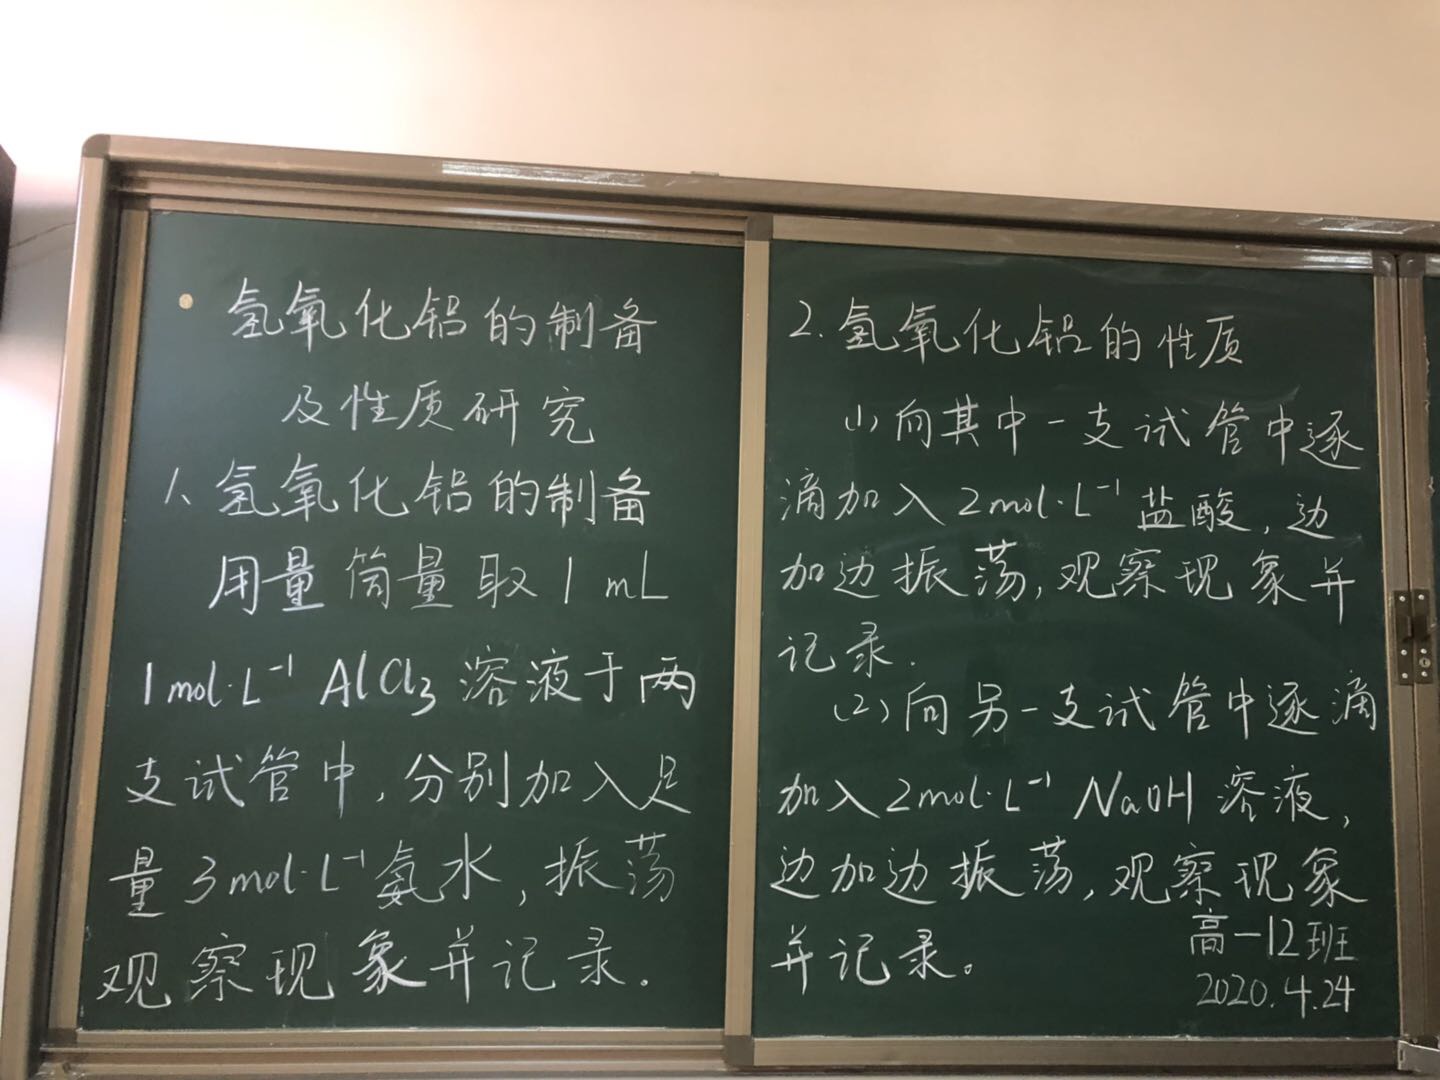 氢氧化铝的制备
及性质研究
1、氢氧化铝的制备
用量筒量取1mL
1mol·L⁻¹ AlCl₃ 溶液于两
支试管中,分别加入足
量3mol·L⁻¹氨水,振荡
观察现象并记录.
2.氢氧化铝的性质
(1)向其中一支试管中逐
滴加入2mol·L⁻¹盐酸,边
加边振荡,观察现象并
记录.
(2)向另一支试管中逐滴
加入2mol·L⁻¹ NaOH 溶液,
边加边振荡,观察现象
并记录。
高一12班
2020.4.24